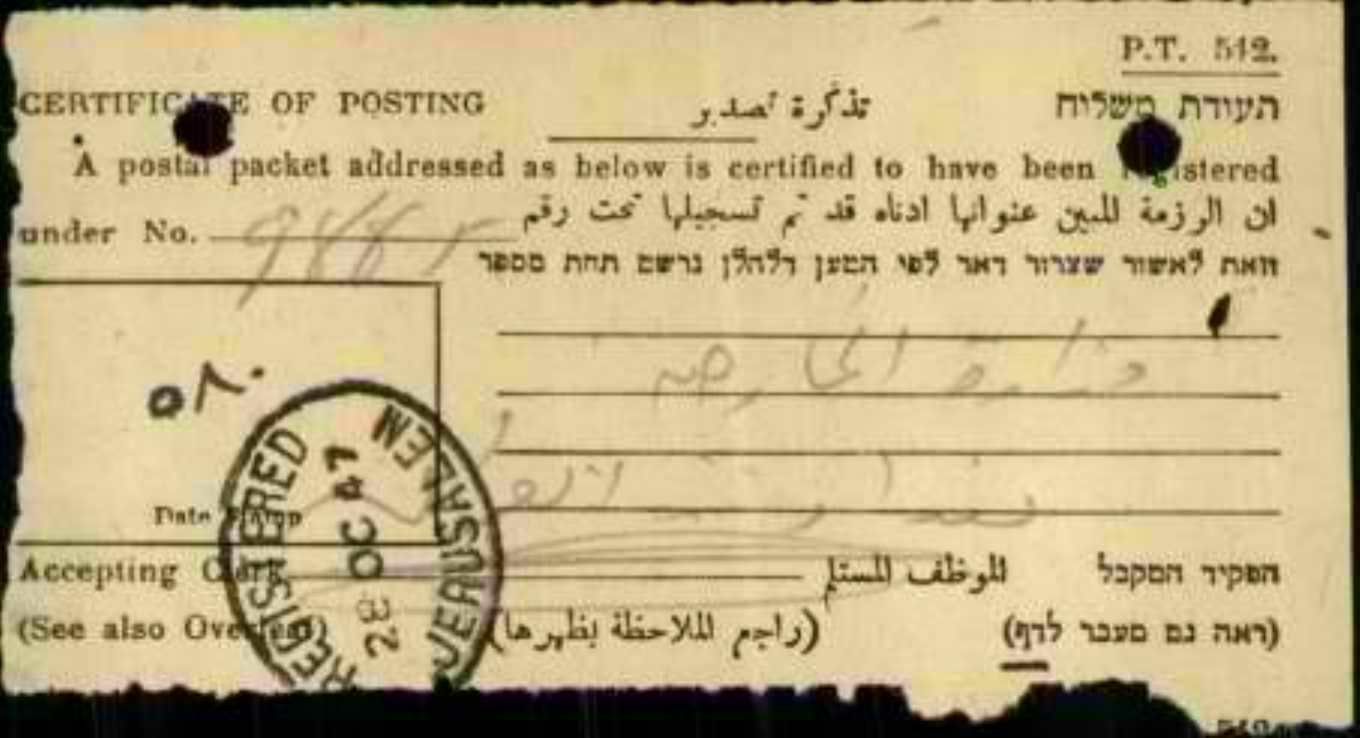 P.T. 512.
CERTIFICATE OF POSTING تذكرة تصدير תעודת משלוח
A postal packet addressed as below is certified to have been registered
ان الرزمة المبين عنوانها ادناه قد تم تسجيلها تحت رقم
under No.
וזאת לאשור שצרור דאר לפי המען דלהלן נרשם תחת מספר
٥٨٠
الخارجية
Date Stamp
REGISTERED JERUSALEM
28 OC 47
Accepting Clerk الموظف المستلم הפקיד המקבל
(See also Overleaf) (راجع الملاحظة بظهرها) (ראה גם מעבר לדף)